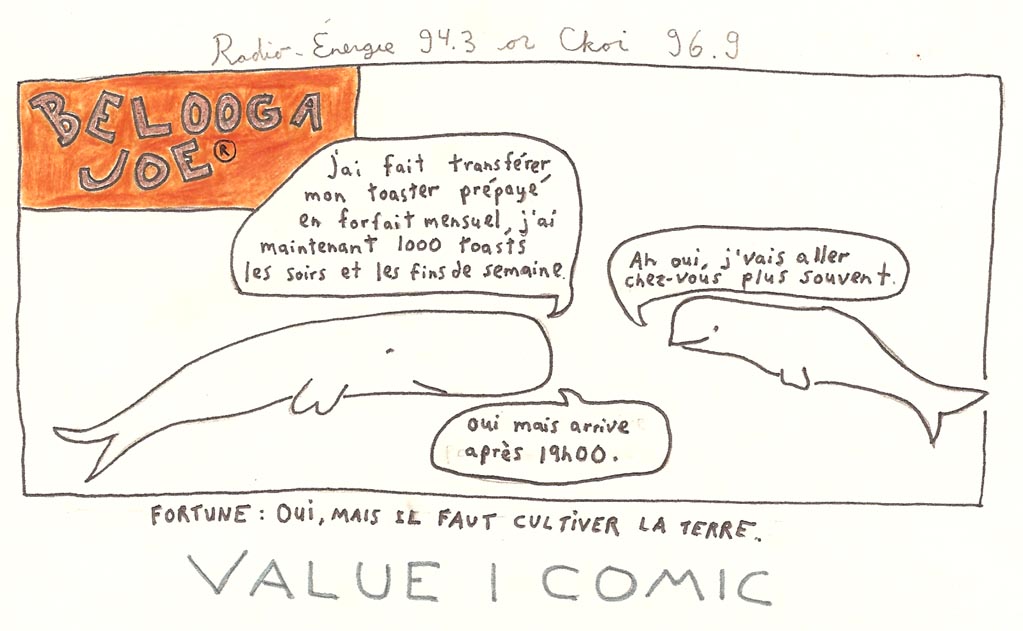 Radio-Énergie 94.3 or Ckoi 96.9
BELOOGA
JOE®
j'ai fait transférer
mon toaster prépayé
en forfait mensuel, j'ai
maintenant 1000 toasts
les soirs et les fins de semaine.
Ah oui, j'vais aller
chez-vous plus souvent.
Oui mais arrive
après 19h00.
FORTUNE : OUI, MAIS IL FAUT CULTIVER LA TERRE.
VALUE 1 COMIC